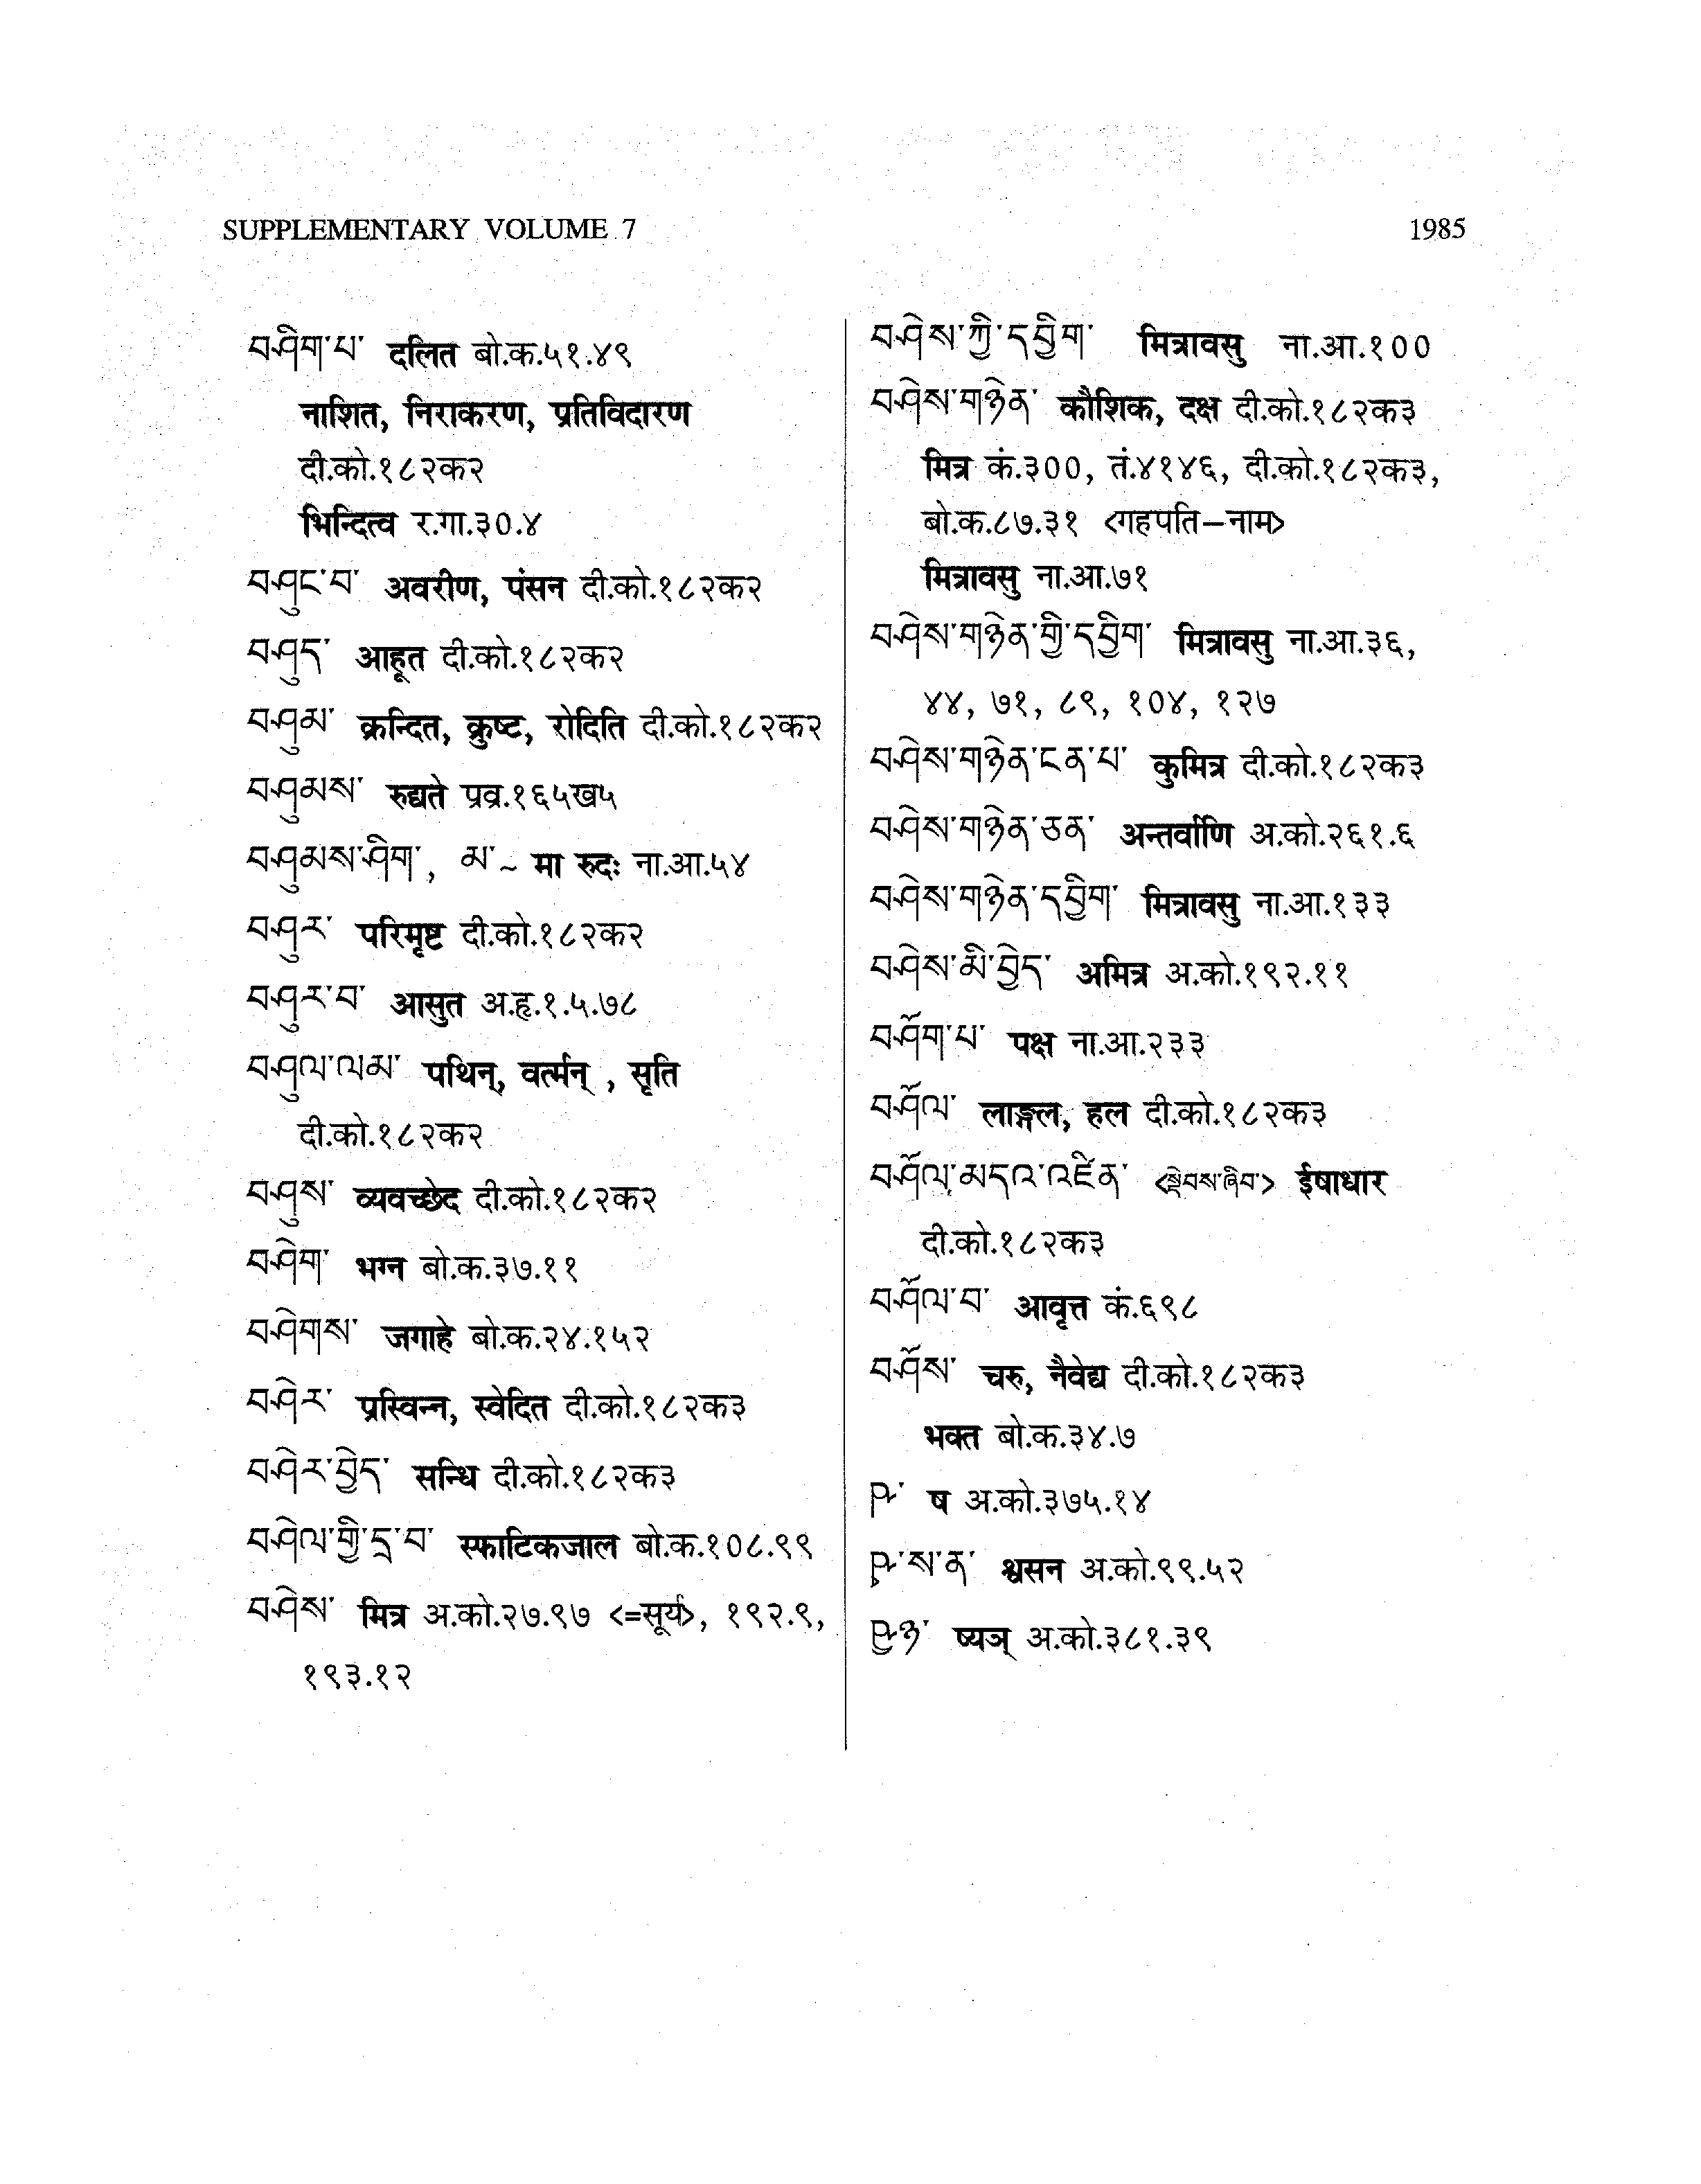 SUPPLEMENTARY VOLUME 7 1985
བཤིག་པ་ दलित बो.क.५१.४९
नाशित, निराकरण, प्रतिविदारण
दी.को.१८२क२
भिन्दित्व र.गा.३०.४
བཤུང་བ་ अवरीण, पंसन दी.को.१८२क२
བཤུད་ आहूत दी.को.१८२क२
བཤུམ་ क्रन्दित, क्रुष्ट, रोदिति दी.को.१८२क२
བཤུམས་ रुद्यते प्रव्र.१६५ख५
བཤུམས་ཤིག་, མ་~ मा रुदः ना.आ.५४
བཤུར་ परिमृष्ट दी.को.१८२क२
བཤུར་བ་ आसुत अ.हृ.१.५.७८
བཤུལ་ལམ་ पथिन्, वर्त्मन् , सृति
दी.को.१८२क२
བཤུས་ व्यवच्छेद दी.को.१८२क२
བཤེག་ भग्न बो.क.३७.११
བཤེགས་ जगाहे बो.क.२४.१५२
བཤེར་ प्रस्विन्न, स्वेदित दी.को.१८२क३
བཤེར་བྱེད་ सन्धि दी.को.१८२क३
བཤེལ་གྱི་དྲ་བ་ स्फाटिकजाल बो.क.१०८.९९
བཤེས་ मित्र अ.को.२७.९७ <=सूर्य>, १९२.९,
१९३.१२
བཤེས་ཀྱི་དབྱིག་ मित्रावसु ना.आ.१००
བཤེས་གཉེན་ कौशिक, दक्ष दी.को.१८२क३
मित्र कं.३००, तं.४१४६, दी.को.१८२क३,
बो.क.८७.३१ <गहपति–नाम>
मित्रावसु ना.आ.७१
བཤེས་གཉེན་གྱི་དབྱིག་ मित्रावसु ना.आ.३६,
४४, ७१, ८९, १०४, १२७
བཤེས་གཉེན་ངན་པ་ कुमित्र दी.को.१८२क३
བཤེས་གཉེན་ཅན་ अन्तर्वाणि अ.को.२६१.६
བཤེས་གཉེན་དབྱིག་ मित्रावसु ना.आ.१३३
བཤེས་མི་བྱེད་ अमित्र अ.को.१९२.११
བཤོག་པ་ पक्ष ना.आ.२३३
བཤོལ་ लाङ्गल, हल दी.को.१८२क३
བཤོལ་མདའ་འཛིན་ <སྡེབས་ཞིབ་> ईषाधार
दी.को.१८२क३
བཤོལ་བ་ आवृत्त कं.६९८
བཤོས་ चरु, नैवेद्य दी.को.१८२क३
भक्त बो.क.३४.७
ཥ་ ष अ.को.३७५.१४
श्वसन अ.को.९९.५२
ष्यञ् अ.को.३८१.३९